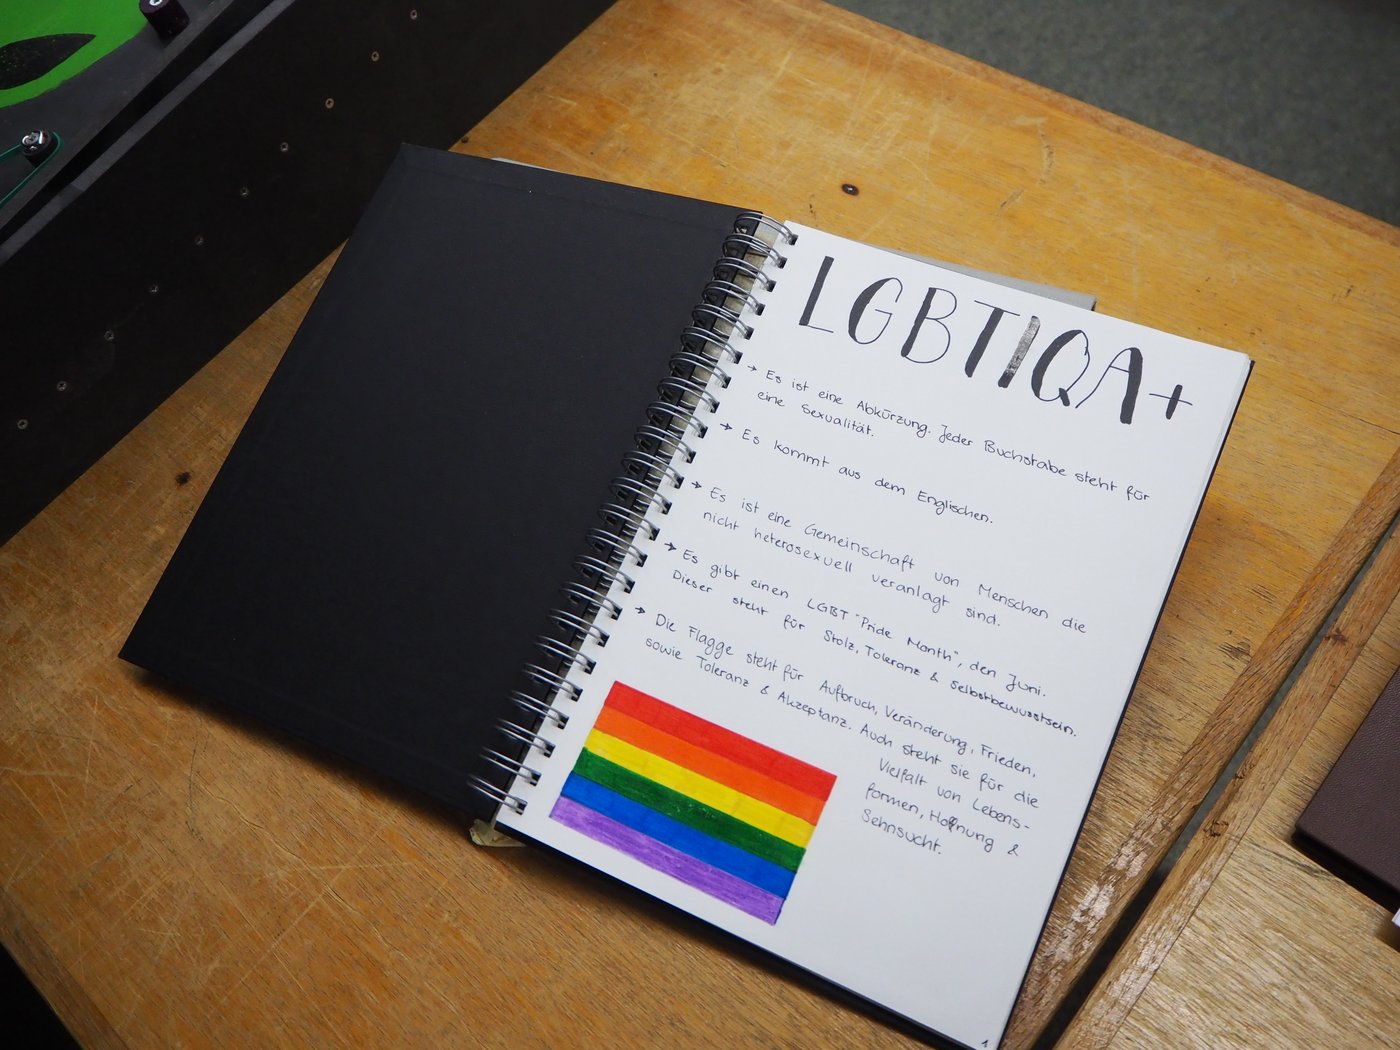 LGBTIQA+
→ Es ist eine Abkürzung. Jeder Buchstabe steht für
eine Sexualität.
→ Es kommt aus dem Englischen.
→ Es ist eine Gemeinschaft von Menschen die
nicht heterosexuell veranlagt sind.
→ Es gibt einen LGBT "Pride Month", den Juni.
Dieser steht für Stolz, Toleranz & Selbstbewusstsein.
→ Die Flagge steht für Aufbruch, Veränderung, Frieden,
sowie Toleranz & Akzeptanz. Auch steht sie für die
Vielfalt von Lebens-
formen, Hoffnung &
Sehnsucht.
1